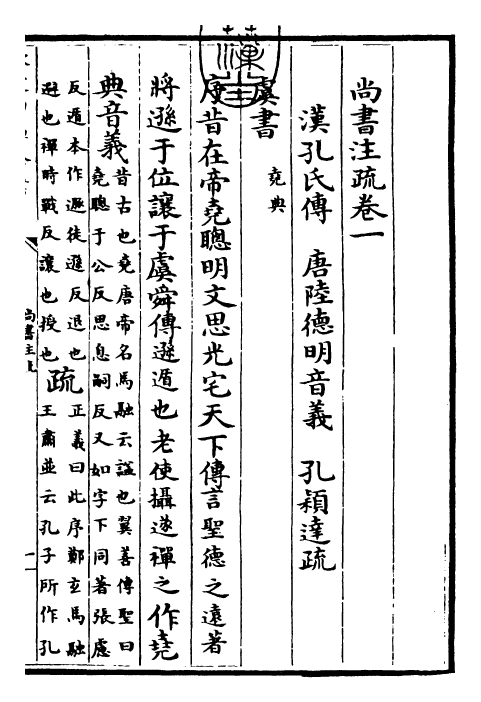 尚書注疏卷一
漢孔氏傳　唐陸德明音義　孔穎達疏
虞書
堯典
序昔在帝堯聰明文思光宅天下傳言聖德之遠著
將遜于位讓于虞舜傳遜遁也老使攝遂禪之作堯
典音義
昔古也堯唐帝名馬融云諡也翼善傳聖曰
堯聰于公反思息嗣反又如字下同著張慮
反遁本作遯徒遜反退也
避也禪時戰反讓也授也
疏
正義曰此序鄭玄馬融
王肅並云孔子所作孔
尚書注疏
一